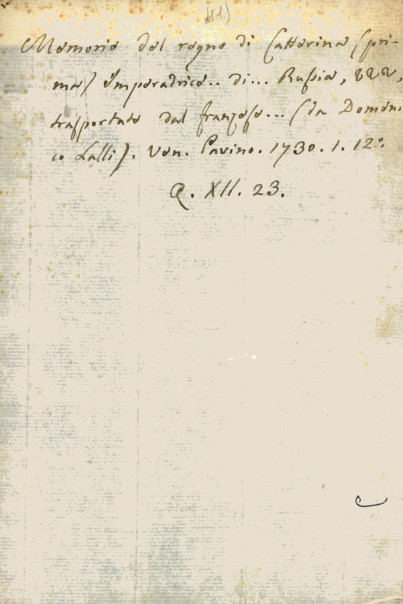 11.)
Memorie del regno di Catterina (pri-
ma) imperadrice.. di... Russia, &&&,
trasportate dal franzese... (da Domeni-
co Lalli). Ven. Pavino. 1730. 1. 12.°
Q. XII. 23.